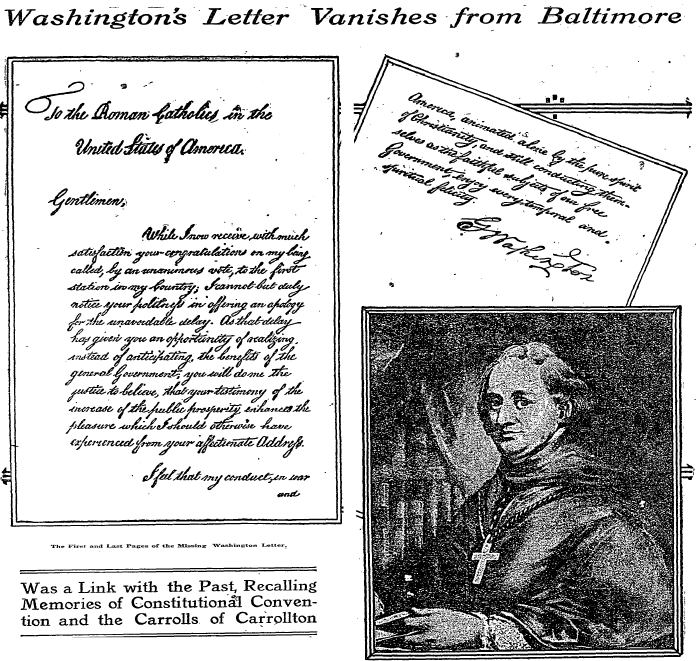 Washington's Letter Vanishes from Baltimore
To the Roman Catholics in the
United States of America.
Gentlemen,
While I now receive, with much
satisfaction your congratulations on my being
called, by an unanimous vote, to the first
station in my Country; I cannot but duly
notice your politness in offering an apology
for the unavoidable delay. As that delay
has given you an opportunity of realizing,
instead of anticipating, the benefits of the
general Government; you will do me the
justice to believe, that your testimony of the
increase of the public prosperity, enhances the
pleasure which I should otherwise have
experienced from your affectionate Address.
I feel that my conduct, in war
and
The First and Last Pages of the Missing Washington Letter.
Was a Link with the Past, Recalling
Memories of Constitutional Conven-
tion and the Carrolls of Carrollton
America, animated alone by the pure spirit
of Christianity, and still conducting them-
selves as the faithful subjects of our free
Government, enjoy every temporal and
spiritual felicity.
G Washington